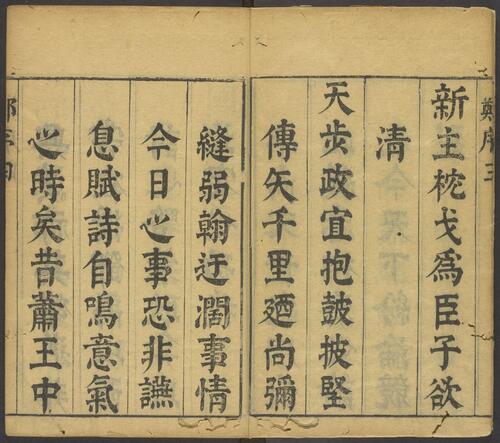 新主枕戈爲臣子欲
清
天步政宜抱鼓披堅
傳矢千里廼尚彌
縫弱翰迂濶事情
今日之事恐非讌
息賦詩自鳴意氣
之時矣昔蕭王中
鄭序三